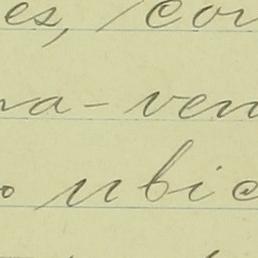 es, con
na-ven
o ubic